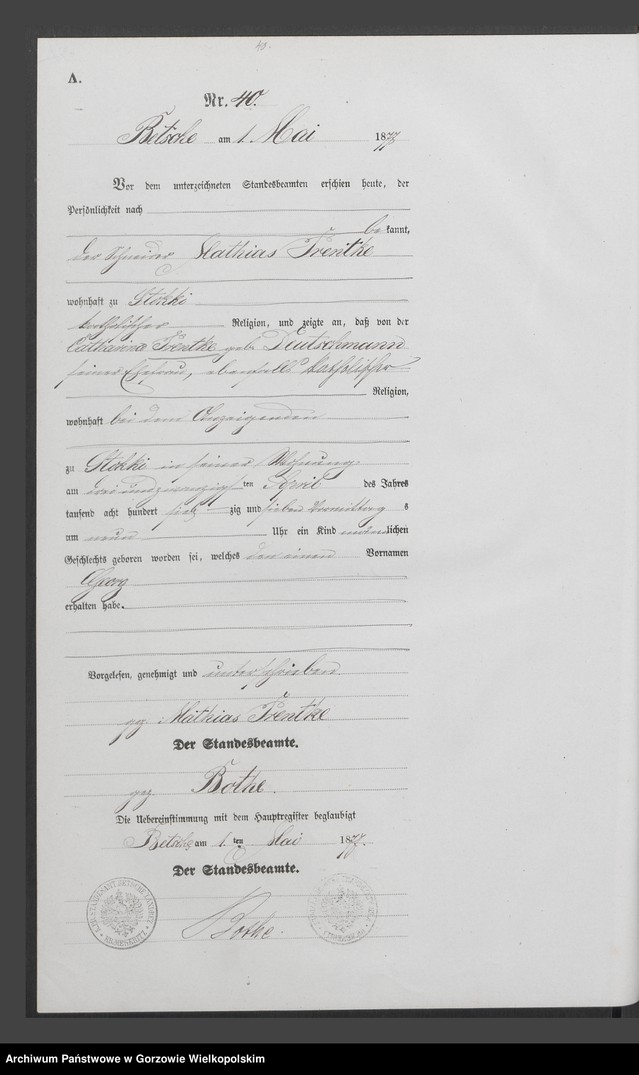 40.
A.
Nr. 40.
Betsche am 1. Mai 1877
Vor dem unterzeichneten Standesbeamten erschien heute, der
Persönlichkeit nach
bekannt,
der Schneider Mathias Trentke
wohnhaft zu Stokki
katholischer Religion, und zeigte an, daß von der
Catharina Trentke geb. Deutschmann
seiner Ehefrau, ebenfalls katholischer
Religion,
wohnhaft bei dem Anzeigenden
zu Stokki in seiner Wohnung
am drei und zwanzigsten April des Jahres
tausend acht hundert siebzig und sieben Vormittags
um neun Uhr ein Kind männlichen
Geschlechts geboren worden sei, welches den einen Vornamen
Georg
erhalten habe.
Vorgelesen, genehmigt und unterschrieben
gez. Mathias Trentke
Der Standesbeamte.
gez. Bothe.
Die Uebereinstimmung mit dem Hauptregister beglaubigt
Betsche am 1. ten Mai 1877.
Der Standesbeamte.
Bothe.
Archiwum Państwowe w Gorzowie Wielkopolskim